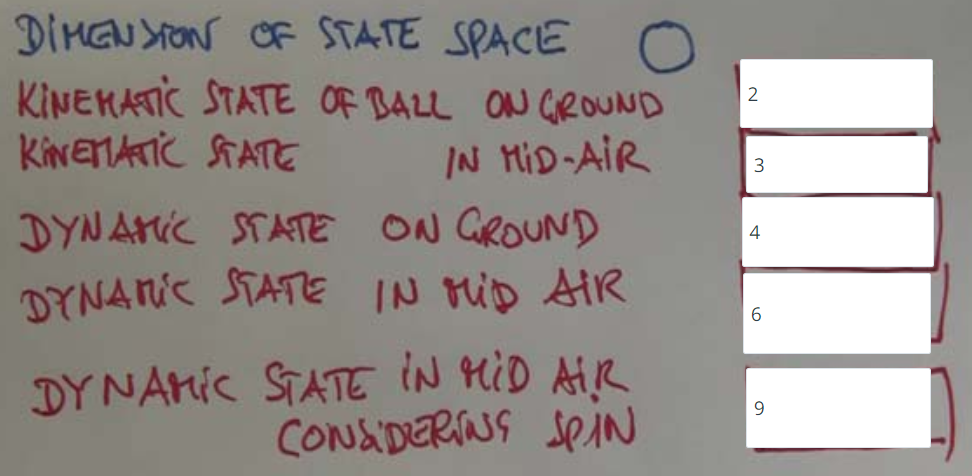 DIMENSION OF STATE SPACE
KINEMATIC STATE OF BALL ON GROUND 2
KINEMATIC STATE IN MID-AIR 3
DYNAMIC STATE ON GROUND 4
DYNAMIC STATE IN MID AIR 6
DYNAMIC STATE IN MID AIR
CONSIDERING SPIN 9